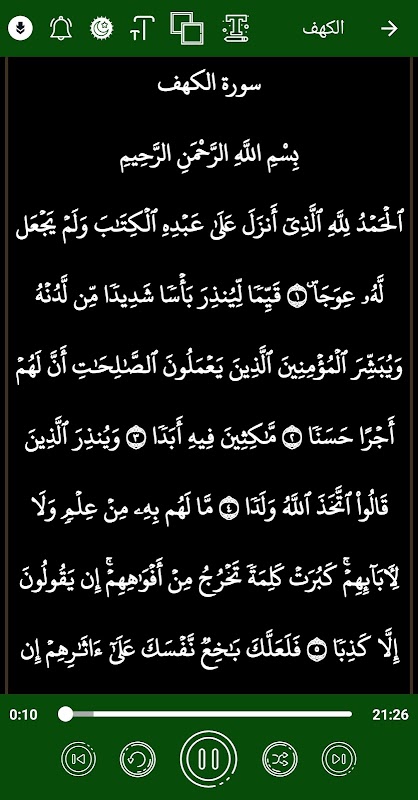 الكهف
سورة الكهف
بِسْمِ اللَّهِ الرَّحْمَنِ الرَّحِيمِ
ٱلْحَمْدُ لِلَّهِ ٱلَّذِىٓ أَنزَلَ عَلَىٰ عَبْدِهِ ٱلْكِتَـٰبَ وَلَمْ يَجْعَل
لَّهُۥ عِوَجَاۜ ١ قَيِّمًا لِّيُنذِرَ بَأْسًا شَدِيدًا مِّن لَّدُنْهُ
وَيُبَشِّرَ ٱلْمُؤْمِنِينَ ٱلَّذِينَ يَعْمَلُونَ ٱلصَّـٰلِحَـٰتِ أَنَّ لَهُمْ
أَجْرًا حَسَنًا ٢ مَّـٰكِثِينَ فِيهِ أَبَدًا ٣ وَيُنذِرَ ٱلَّذِينَ
قَالُوا۟ ٱتَّخَذَ ٱللَّهُ وَلَدًا ٤ مَّا لَهُم بِهِۦ مِنْ عِلْمٍ وَلَا
لِـَٔابَآئِهِمْ ۚ كَبُرَتْ كَلِمَةً تَخْرُجُ مِنْ أَفْوَٰهِهِمْ ۚ إِن يَقُولُونَ
إِلَّا كَذِبًا ٥ فَلَعَلَّكَ بَـٰخِعٌ نَّفْسَكَ عَلَىٰٓ ءَاثَـٰرِهِمْ إِن
0:10 21:26